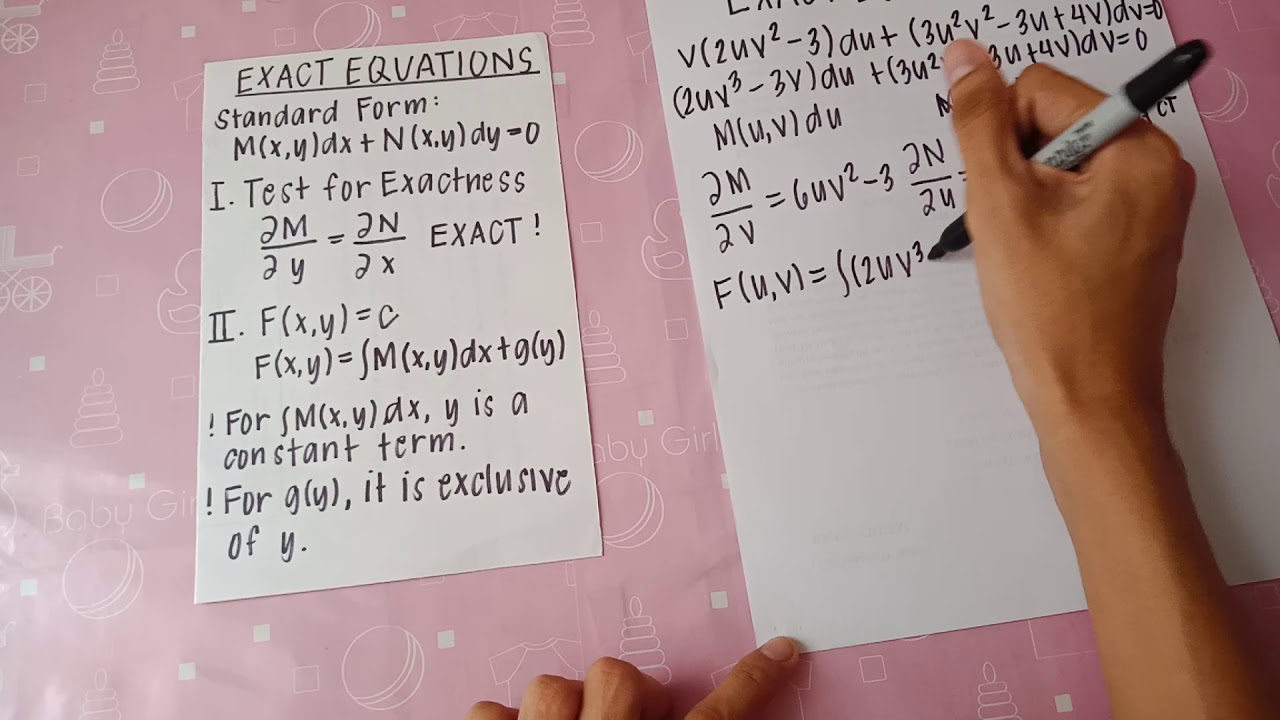 EXACT EQUATIONS
Standard Form:
M(x,y)dx+N(x,y)dy=0
I. Test for Exactness
∂M/∂y = ∂N/∂x EXACT!
II. F(x,y)=c
F(x,y)=∫M(x,y)dx+g(y)
! For ∫M(x,y)dx, y is a
constant term.
! For g(y), it is exclusive
of y.
v(2uv²-3)du+(3u²v²-3u+4v)dv=0
(2uv³-3v)du+(3u² 3u+4v)dv=0
M(u,v)du
∂M/∂v = 6uv²-3 ∂N/∂u =
F(u,v)=∫(2uv³
Baby Girl
Baby Girl